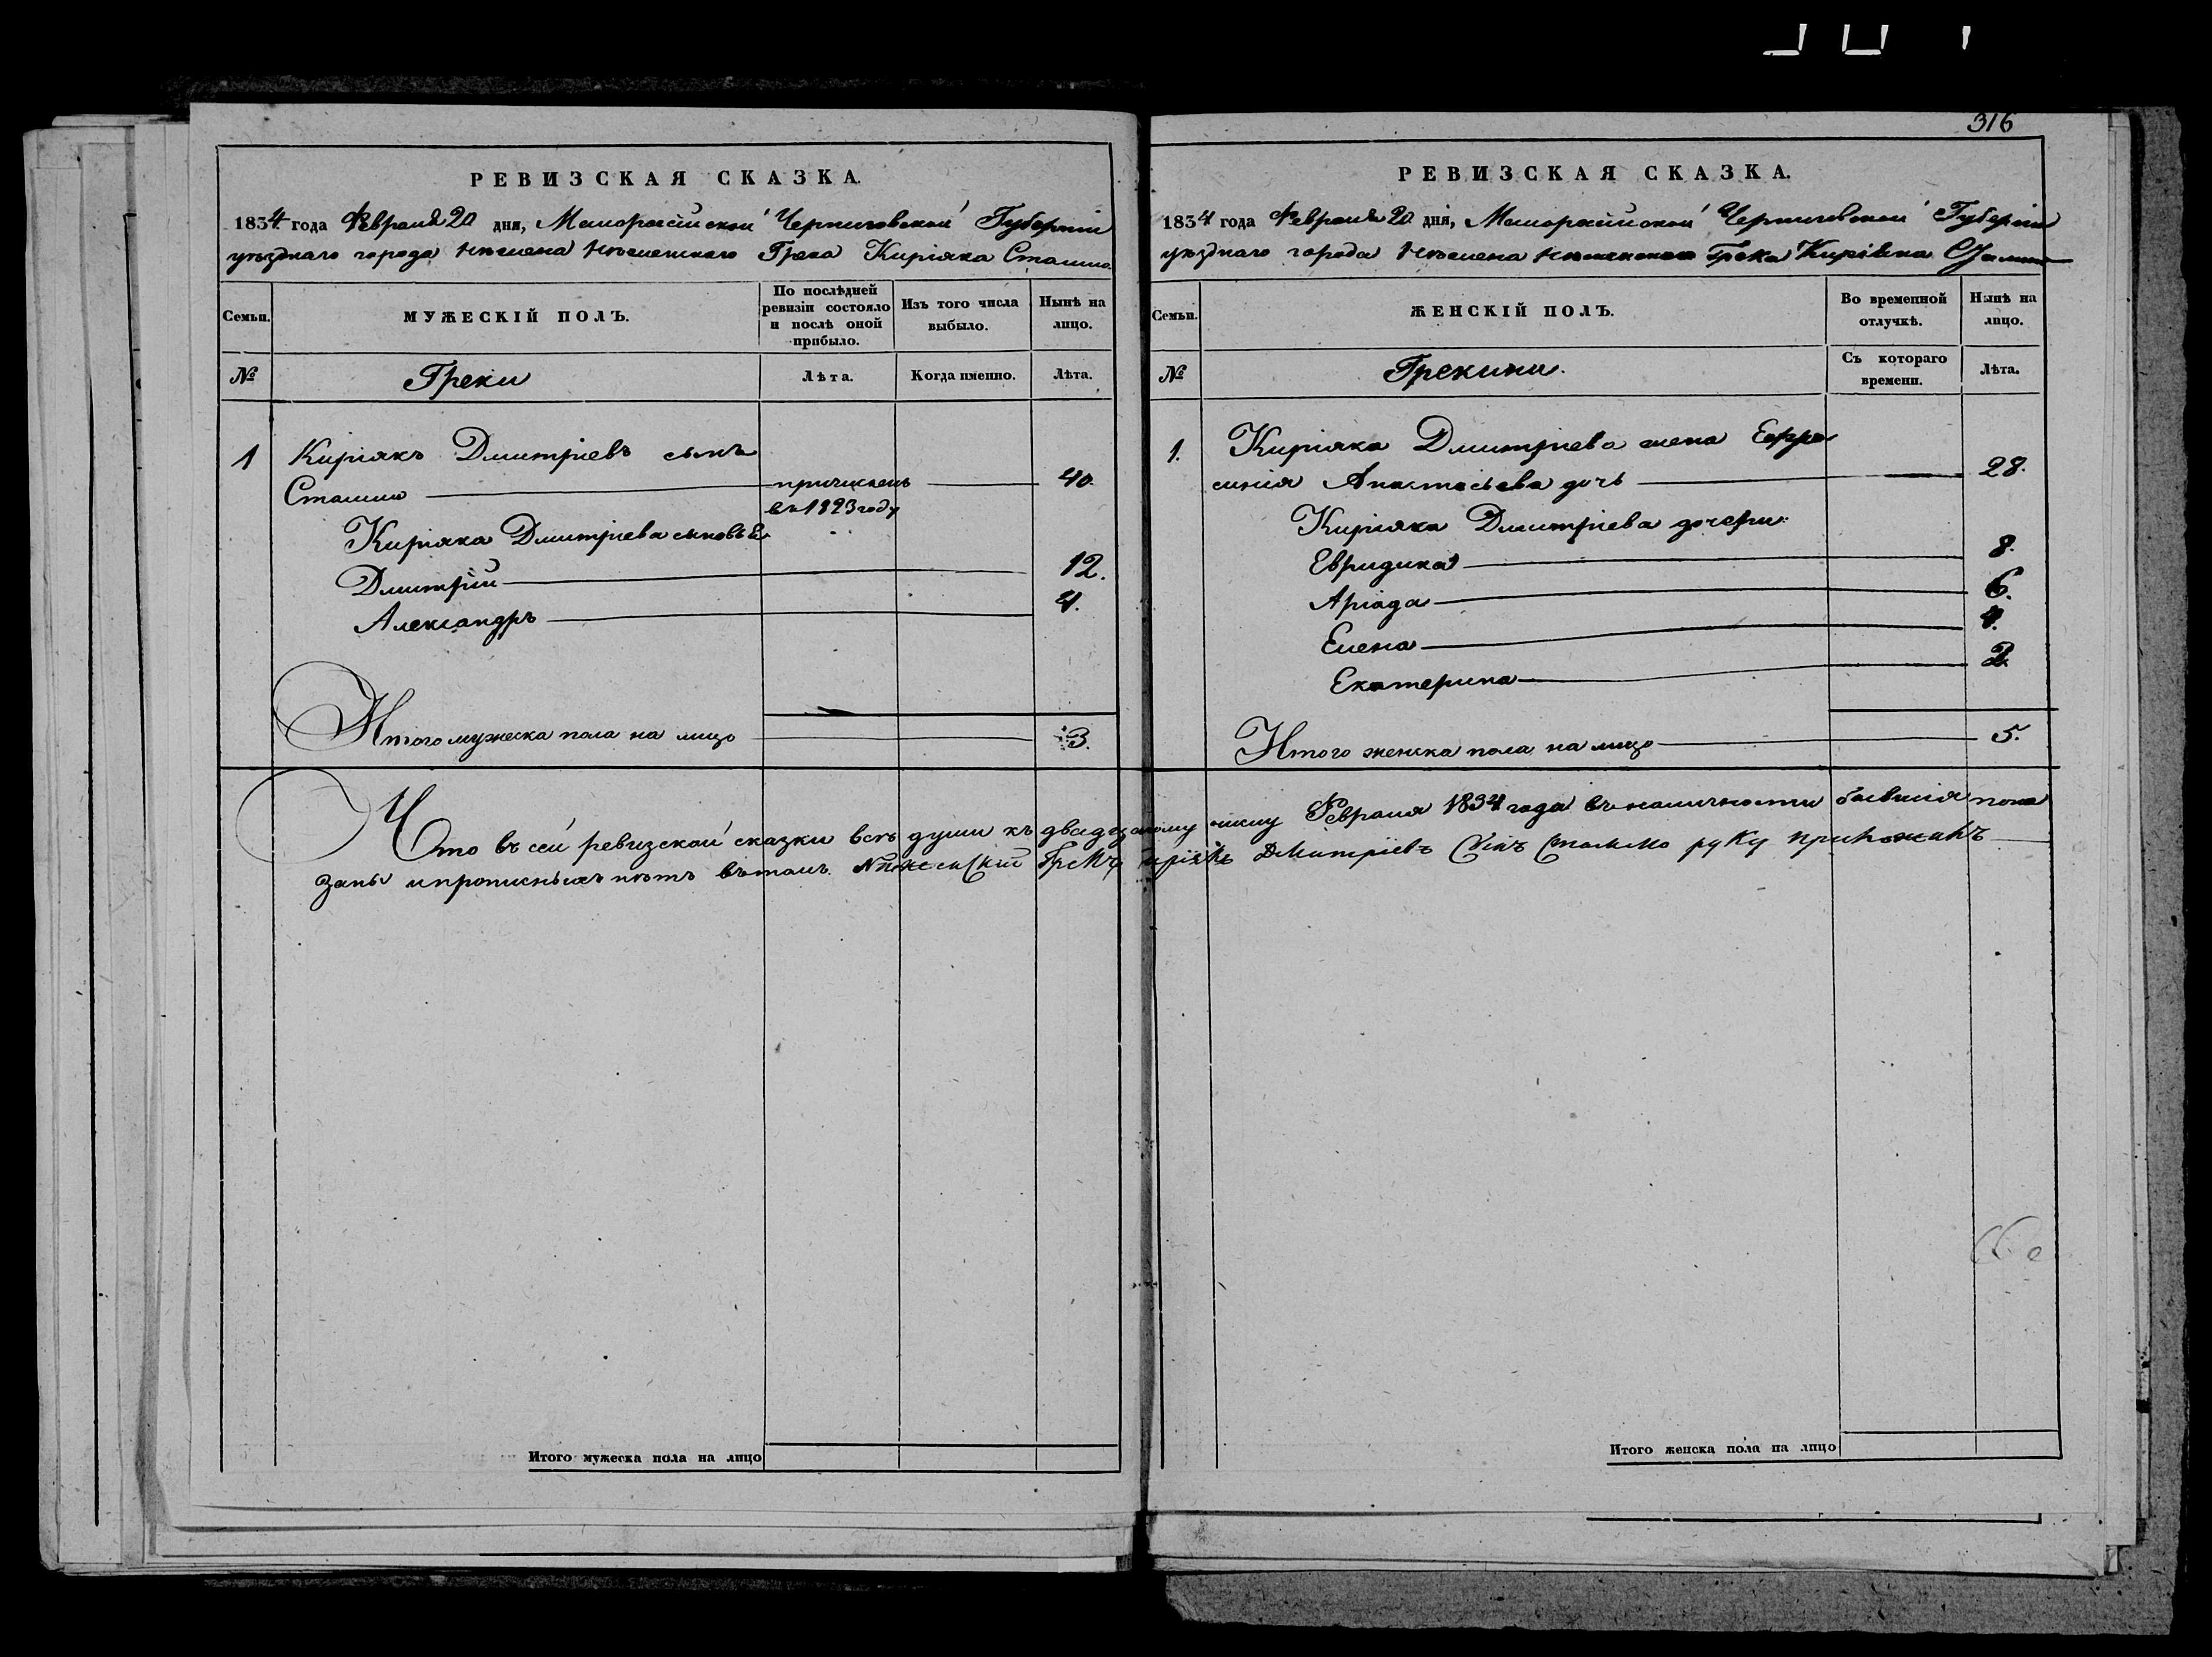 316
РЕВИЗСКАЯ СКАЗКА.
1834 года Февраля 20 дня, Малоросійской Черниговской Губерніи
уѣзднаго города Нѣжена Нѣженскаго Грека Киріяка Стамино
Семьи.
МУЖЕСКІЙ ПОЛЪ.
По послѣдней ревизіи состояло и послѣ оной прибыло.
Изъ того числа выбыло.
Нынѣ на лицо.
№
Греки
Лѣта.
Когда именно.
Лѣта.
1 Киріякъ Дмитріевъ сынъ
причисленъ 40.
въ 1823 году
Киріяка Дмитріева сыновья
Дмитрій 12.
Александръ 4.
Итого мужеска пола на лицо 3.
РЕВИЗСКАЯ СКАЗКА.
1834 года Февраля 20 дня, Малоросійской Черниговской Губерніи
уѣзднаго города Нѣжена Нѣженскаго Грека Киріяка
Семьи.
ЖЕНСКІЙ ПОЛЪ.
Во временной отлучкѣ.
Нынѣ на лицо.
№
Грекини.
Съ котораго времени.
Лѣта.
1. Киріяка Дмитріева жена Ефро
синія Анастасьева дочь 28.
Киріяка Дмитріева дочери:
Евридика 8.
Аріада 6.
Елена 4.
Екатерина 2.
Итого женска пола на лицо 5.
Что въ сей ревизской сказки всѣ души къ двадцатому числу Февраля 1834 года въ наличности бывшія пока
заны и прописныхъ нѣтъ въ томъ Нѣженскій Грекъ Дмитріевъ Сынъ руку приложилъ
Итого мужеска пола на лицо
Итого женска пола на лицо